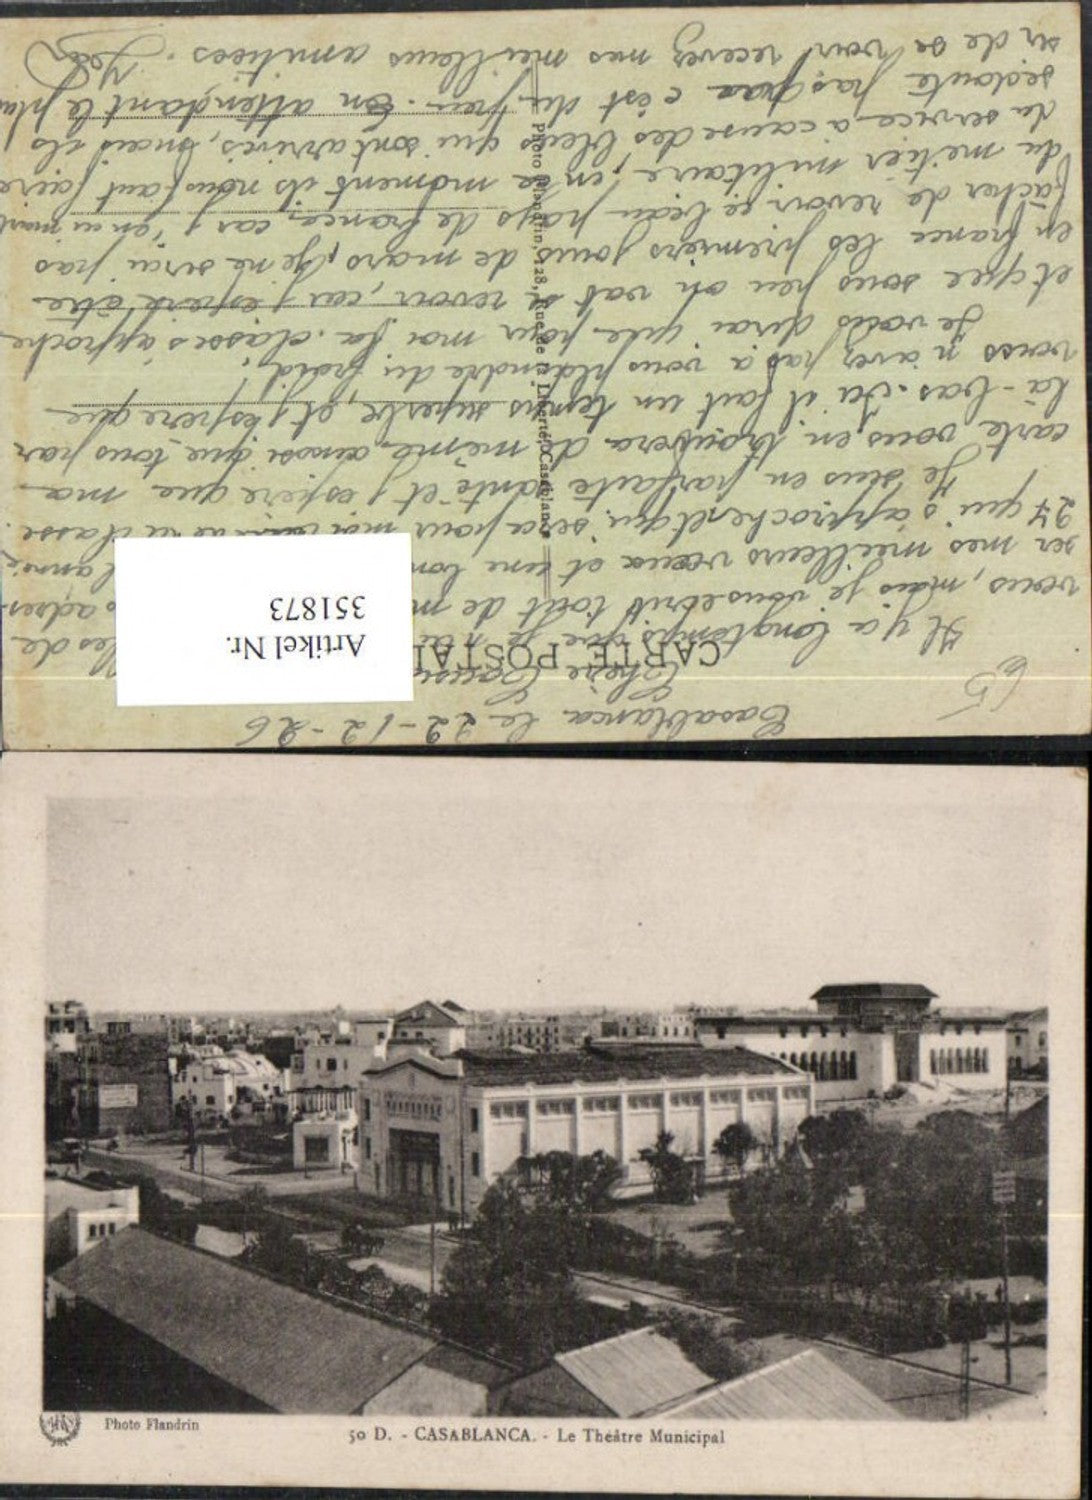 Casablanca le 22-12-26
Chère Cousine
CARTE POSTALE
Il y a longtemps que je n'ai de
vous, mais je vous ecrit tout de m adres-
ser mes meilleurs vœux et une bon l'année
27 qui s'approche et qui sera pour moi la classe.
Je suis en parfaite santé et j'espère que ma
carte vous en trouvera de même ainsi que tous par
là-bas. Ici il fait un temps superbe, et j'espère que
vous n'avez pas à vous plaindre du froid!
Je vous dirai que pour moi la classe s'approche
et que sous peu on vat se revoir, car j'espère être
en france les premiers jours de mars, je ne serai pas
facher de revoir ce beau pays de france car j'en ai marre
du metier militaire, en ce moment ils nous font faire
du service a cause des bleus qui sont arrivés, mais ils
sedoute pas que c'est du peu. En attendant le plai
sir de se voir recevez mes meilleurs amitiées. Jean
65
Photo Flandrin, 128, Rue de la Liberté, Casablanca
Artikel Nr.
351873
Photo Flandrin
50 D. - CASABLANCA. - Le Theâtre Municipal